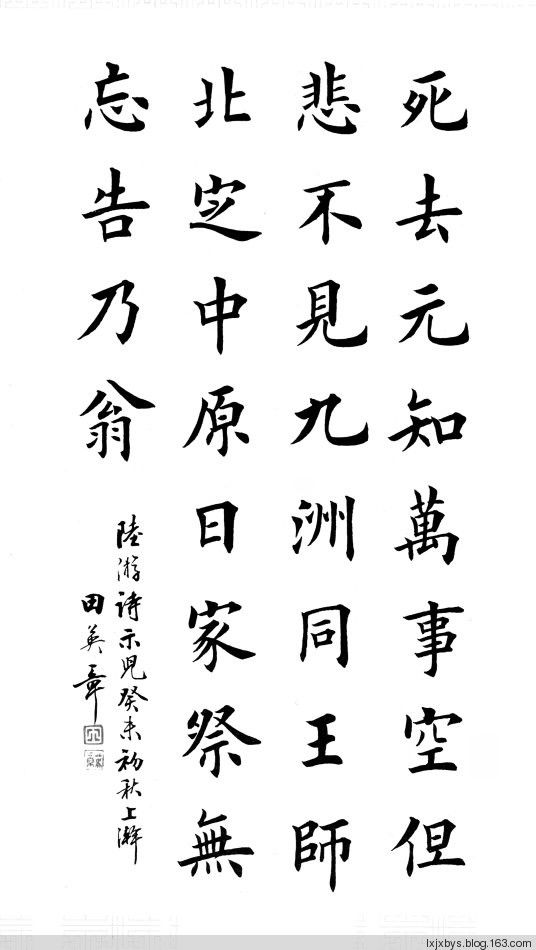 死去元知萬事空但
悲不見九洲同王師
北定中原日家祭無
忘告乃翁
陸游詩示兒癸未初秋上澣
田英章
lxjxbys.blog.163.com